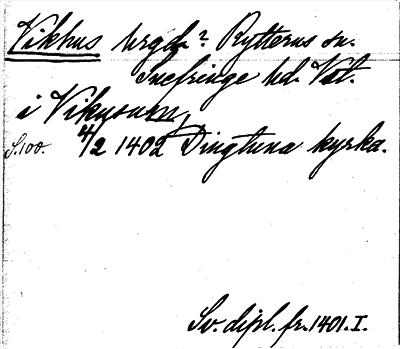 Vikhus urgd? Rytterns sn.
Snefringe hd. Vstl.
i Vikusum,
S.100. 4/2 1402 Dingtuna kyrka.
Sv. dipl. fr. 1401. I.